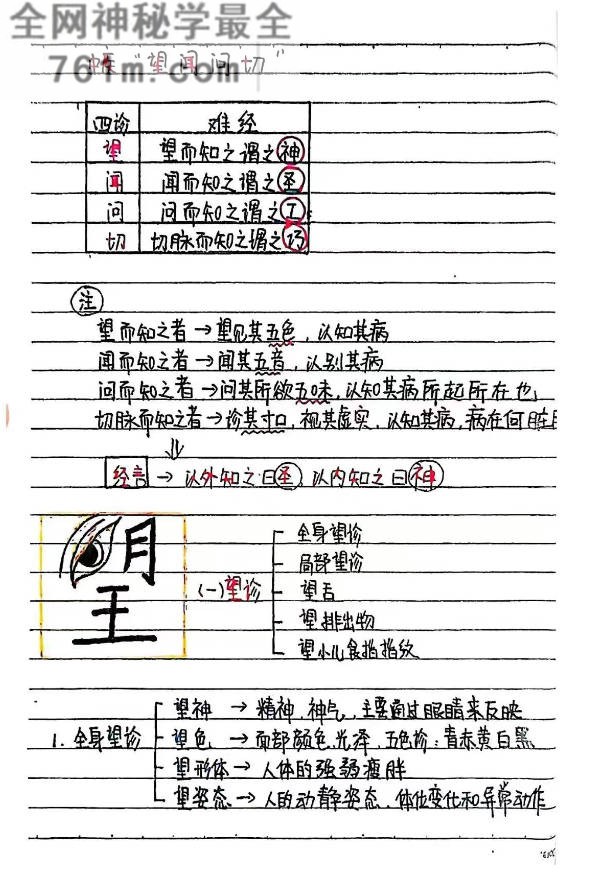 全网神秘学最全
761m.com
"望闻问切"
四诊 难经
望 望而知之谓之神
闻 闻而知之谓之圣
问 问而知之谓之工
切 切脉而知之谓之巧
注
望而知之者→望见其五色，以知其病
闻而知之者→闻其五音，以别其病
问而知之者→问其所欲五味，以知其病所起所在也
切脉而知之者→诊其寸口，视其虚实，以知其病，病在何脏
经言→以外知之曰圣，以内知之曰神
望
(一)望诊
全身望诊
局部望诊
望舌
望排出物
望小儿食指指纹
1. 全身望诊
望神→精神、神气，主要通过眼睛来反映
望色→面部颜色、光泽，五色诊：青赤黄白黑
望形体→人体的强弱瘦胖
望姿态→人的动静姿态、体位变化和异常动作